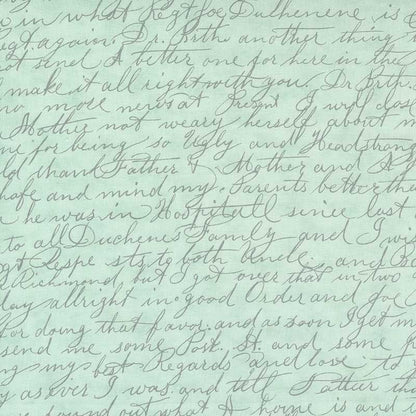 in what Regt Joe Duchenene is
again. Dr. Brth another thing
send A better one for here in the
make it all right with you. Dr. Brth.
no more news at Present I will close
Mother not weary herself about m
me for being so Ugly and Headstrong
ld thank Father & Mother and A
hafe and mind my Parents better tha
he was in Hospitall since last
to all Duchenes Family and I wi
both Uncle. and
Richmond but I got over that in two
day allright in good Order and Joe
For doing that favor. and as soon I get m
send me some Post. St. and some
ng my best Regards and love to
y as ever I was and tell Father th
found out what A home is and